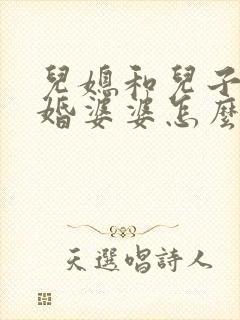 兒媳和兒子
婚婆婆怎麼
天選唱詩人